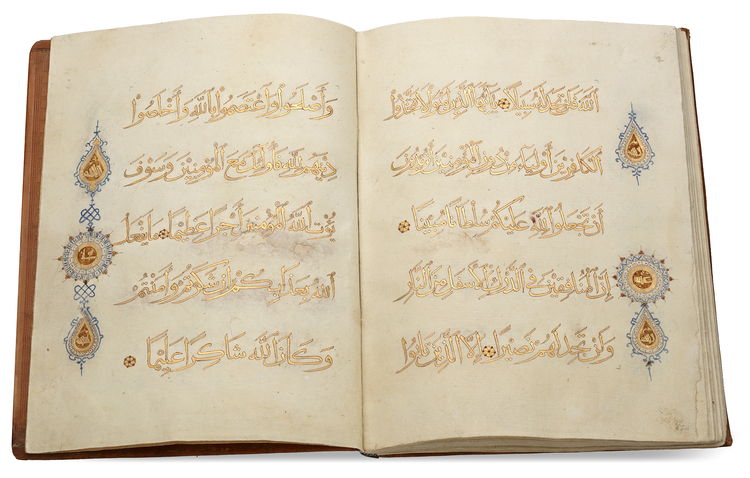 الله فلن تجد له سبيلا يأيها الذين آمنوا لا تتخذوا
الكافرين أولياء من دون المؤمنين أتريدون
أن تجعلوا لله عليكم سلطانا مبينا
إن المنافقين في الدرك الأسفل من النار
ولن تجد لهم نصيرا إلا الذين تابوا
وأصلحوا واعتصموا بالله وأخلصوا
دينهم لله فأولئك مع المؤمنين وسوف
يؤت الله المؤمنين أجرا عظيما ما يفعل
الله بعذابكم إن شكرتم وآمنتم
وكان الله شاكرا عليما